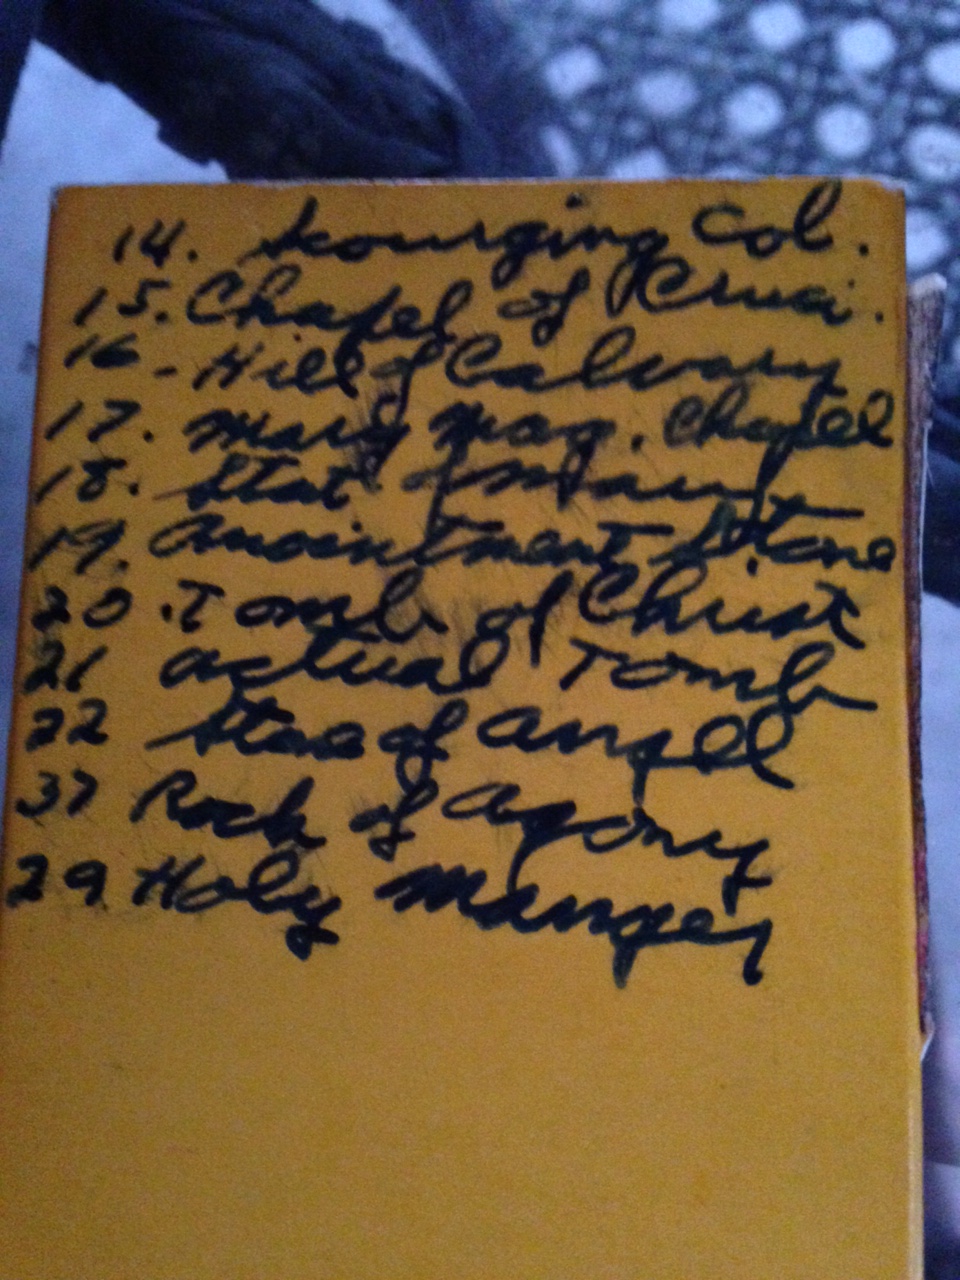 14. Scourging Col.
15. Chapel of Cruci.
16 - Hill of Calvary
17. Mary Mag. Chapel
18. Stat of Mary
19. Anointment Stone
20. Tomb of Christ
21 actual Tomb
22 Stone of Angel
37 Rock of Agony
29 Holy Manger